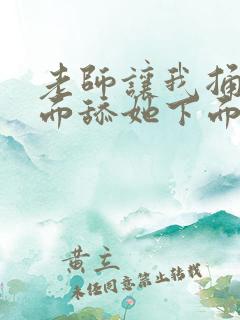 老師讓我捅
而舔她下面
黄立
未经同意禁止转载